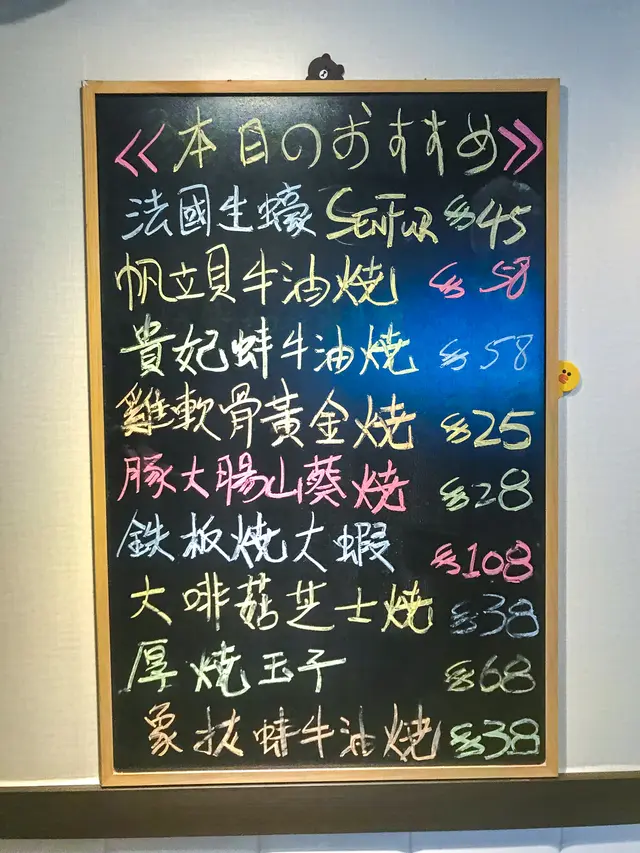 ≪本日のおすすめ≫
法國生蠔 SENFUR $45
帆立貝牛油燒 $58
貴妃蚌牛油燒 $58
雞軟骨黃金燒 $25
豚大腸山葵燒 $28
鉄板燒大蝦 $108
大啡菇芝士燒 $38
厚燒玉子 $68
象拔蚌牛油燒 $38